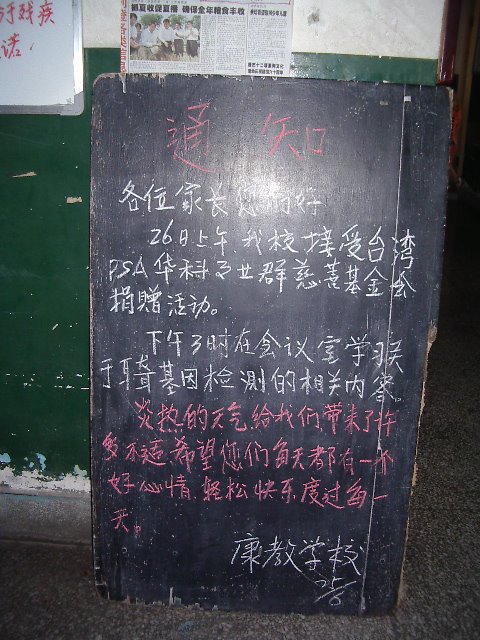 对残疾
话：
抓夏收促直播 确保全年粮食丰收
通知
各位家长您们好
26日上午我校接受台湾
PSA华科事业群慈善基金会
捐赠活动。
下午3时在会议室学习关
于耳聋基因检测的相关内容。
炎热的天气给我们带来了许
多不适,希望您们每天都有一个
好心情,轻松快乐度过每一
天。
康教学校
25号